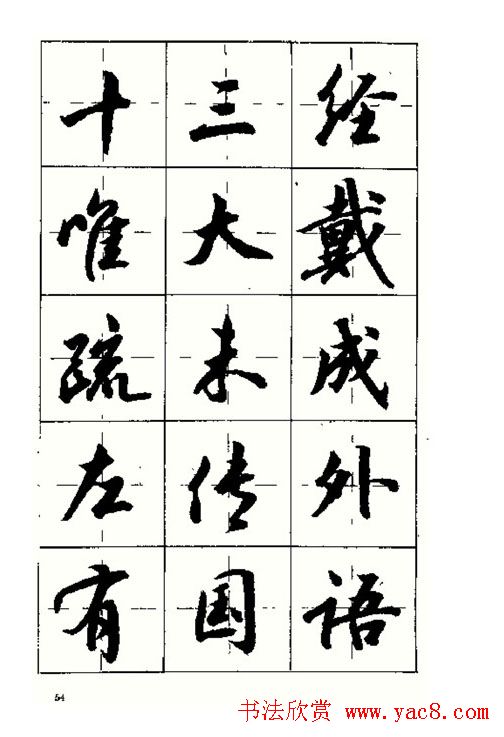 十三经
唯大戴
疏未成
左传外
有国语
54
书法欣赏 www.yac8.com